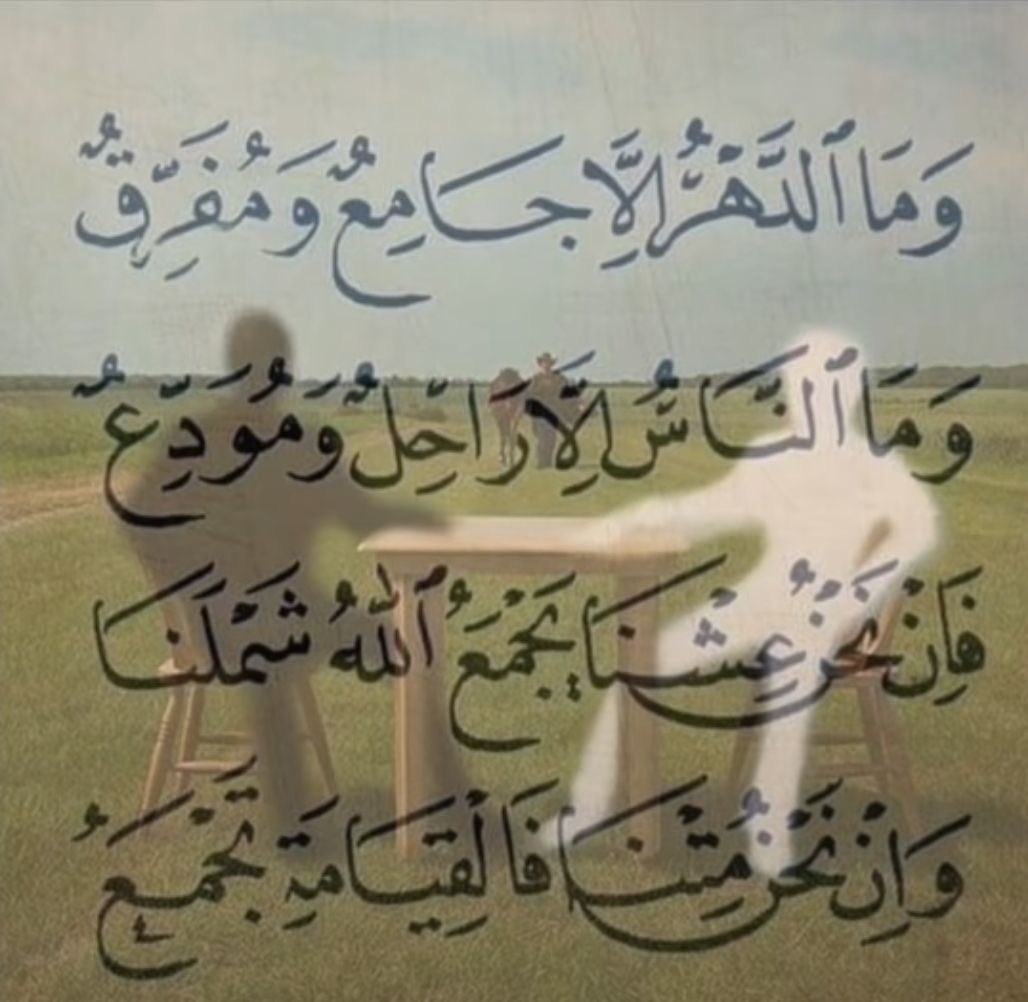 وَمَا ٱلدَّهْرُ إِلَّا جَامِعٌ وَمُفَرِّقٌ
وَمَا ٱلنَّاسُ إِلَّا رَاحِلٌ وَمُوَدِّعٌ
فَاِنْ نَحْنُ عِشْنَا يَجْمَعُ ٱللهُ شَمْلَنَا
وَاِنْ نَحْنُ مِتْنَا فَالْقِيَامَةِ تَجْمَعُ